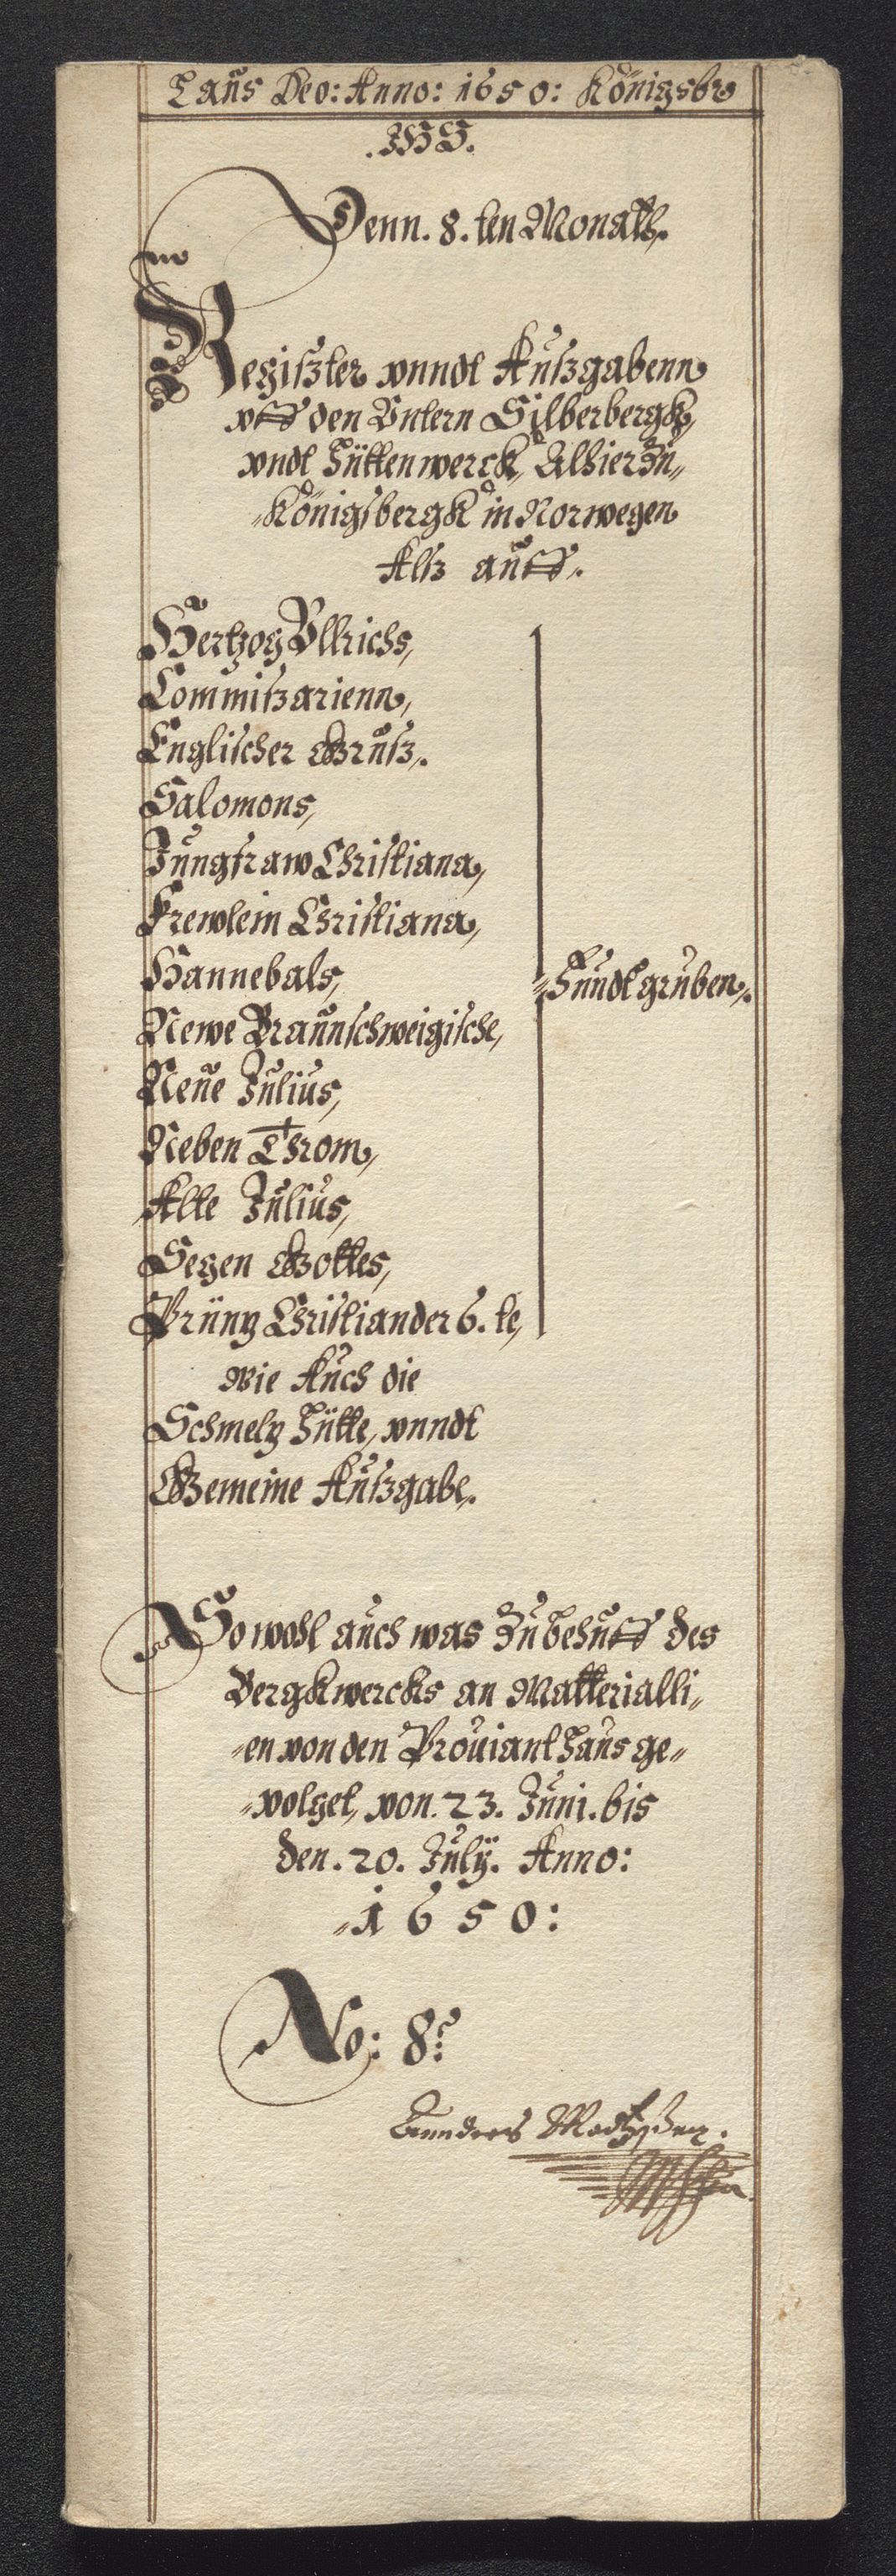 Laus Deo: Anno: 1650: Königsb
.JHS.
Denn. 8. ten Monath.
Regiszter vnndt Auszgabenn
vff den Vntern Silberbergk,
vndt Hüttenwerck, Alhier Zu
Königsbergk in Norwegen
Alsz auff.
Hertzog Vllrichs,
Commiszarienn,
Englischer Grusz.
Salomons,
Jungfraw Christiana,
Frewlein Christiana,
Hannebals,
Fundtgruben.
Newe Braunschweigische,
Neue Julius,
Neben Throm,
Alte Julius,
Segen Gottes,
Printz Christian der 5. te,
wie Auch die
Schmeltz Hütte, vnndt
Gemeine Auszgabe.
So wohl auch was Zu behuff des
Bergkwercks an Matterialli
en von den Prouianthaus ge
volget, von. 23. Juni. bis
den. 20. July. Anno:
1650:
No: 8